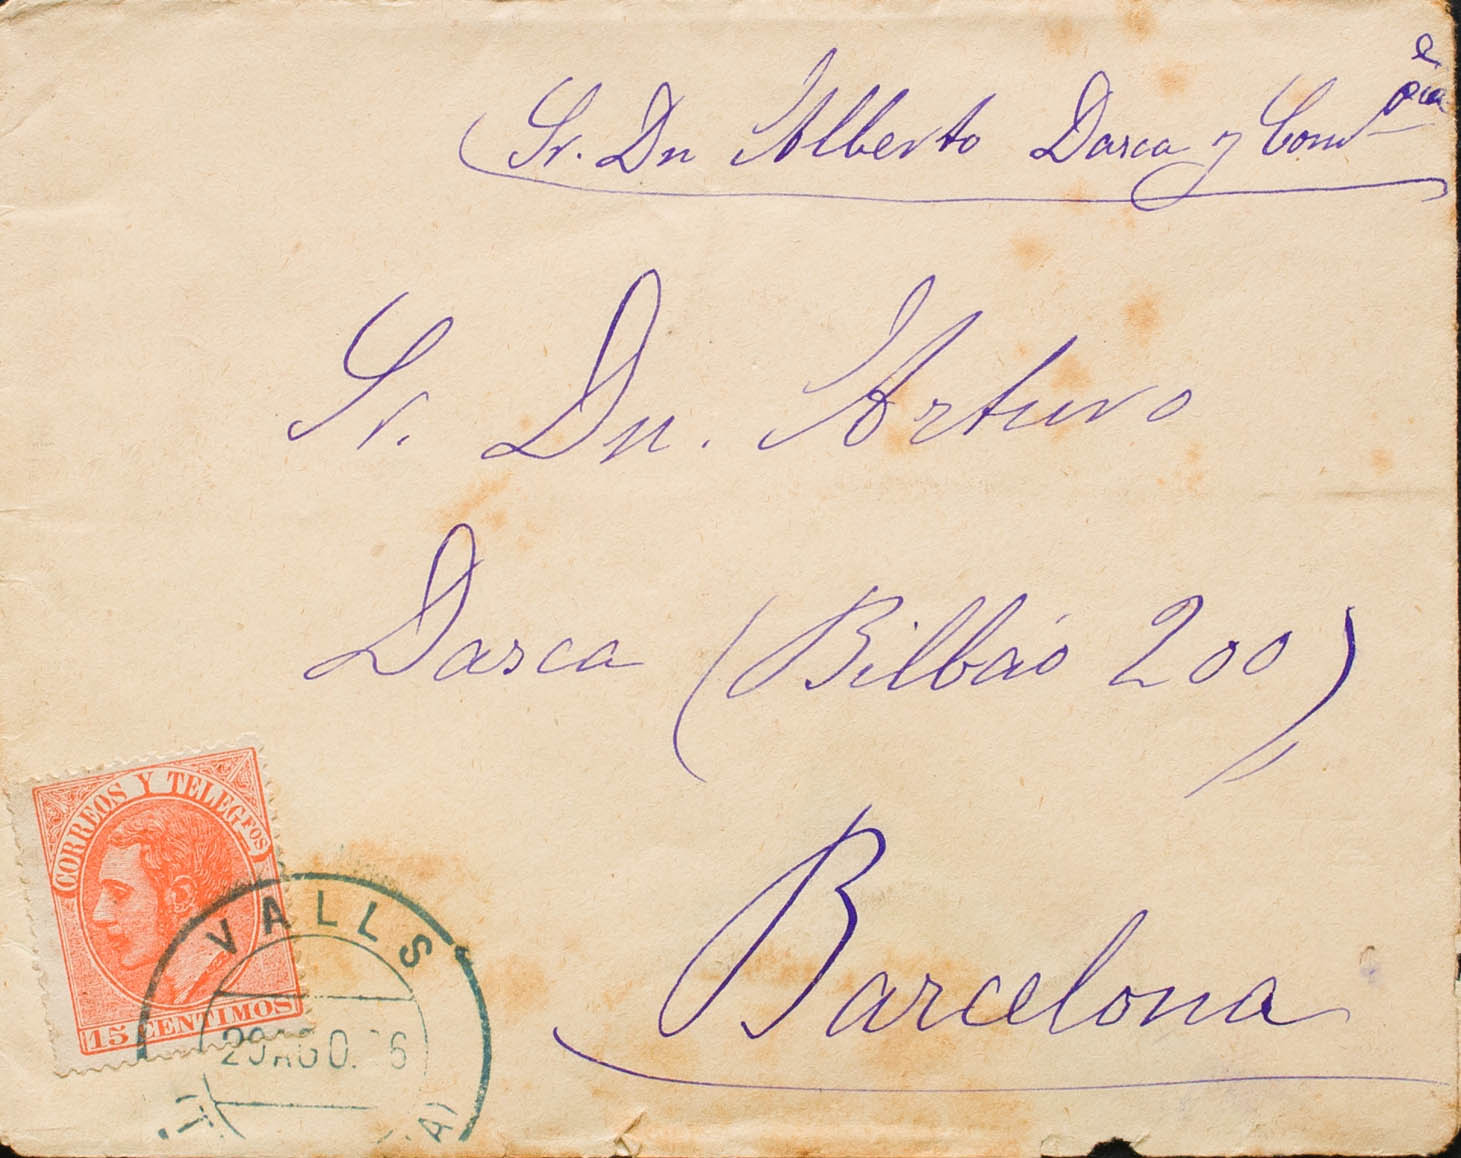 Sr. Dn Alberto Dasca y Comp
Sr. Dn. Arturo
Dasca (Bilbáo 200)
Barcelona
CORREOS Y TELEGFOS
15 CENTIMOS
VALLS